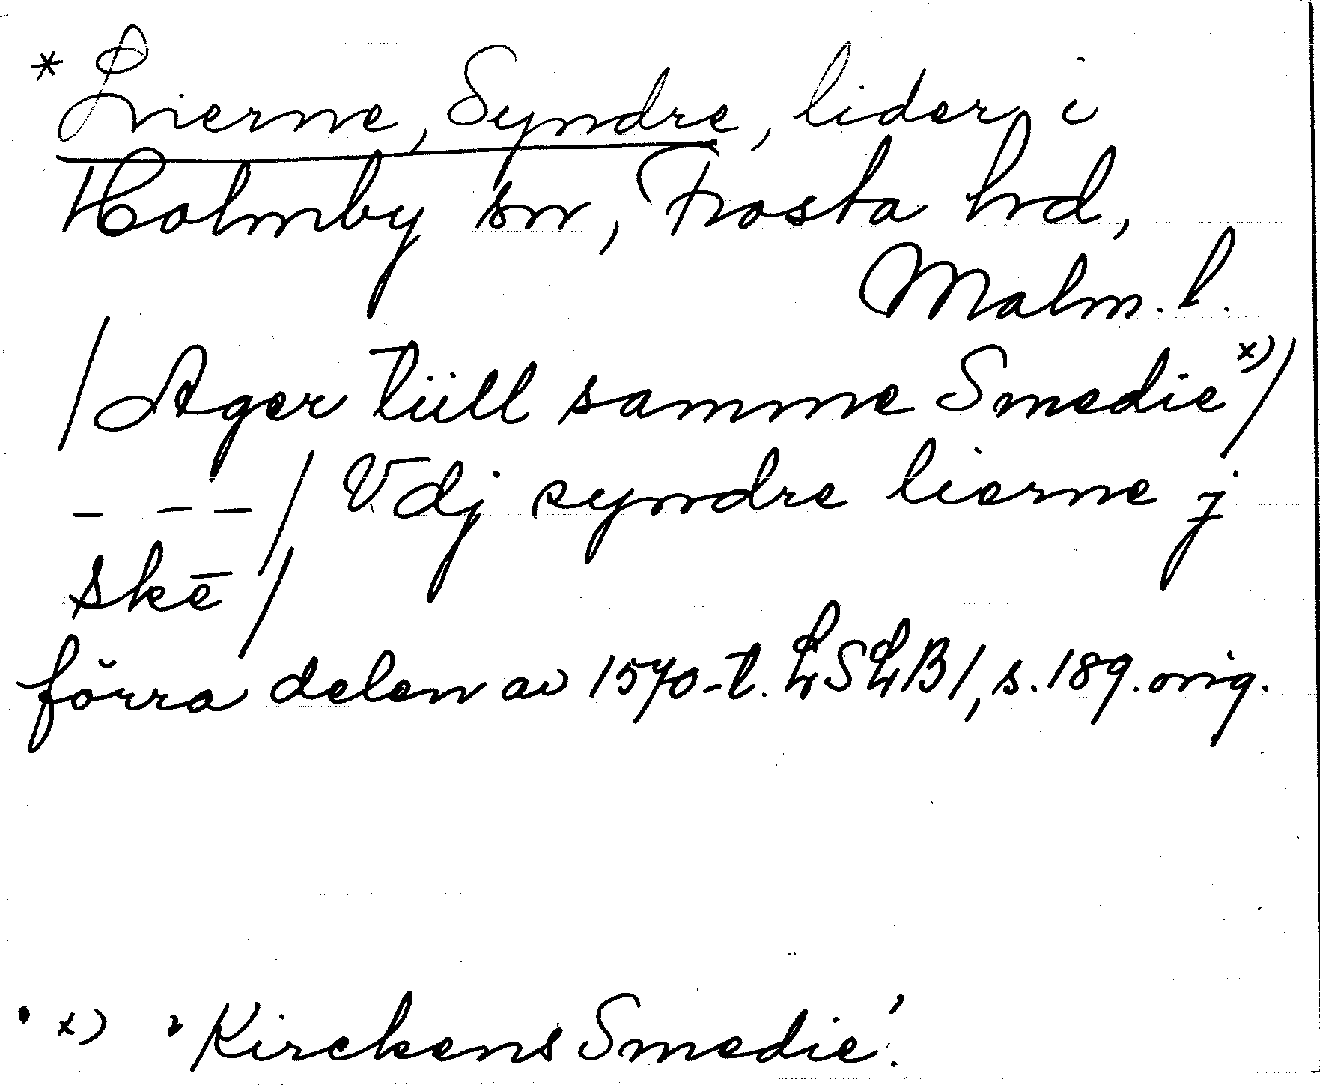 * Lierne, Syndre, lider, i
Holmby sn, Frosta hd,
Malm. l.
/ Ager tiill samme Smedie x) /
_ _ _ / Vdj syndre lierne j
skē /
förra delen av 1570-t. LSLB1, s. 189. orig.
x) 'Kirckens Smedie'.